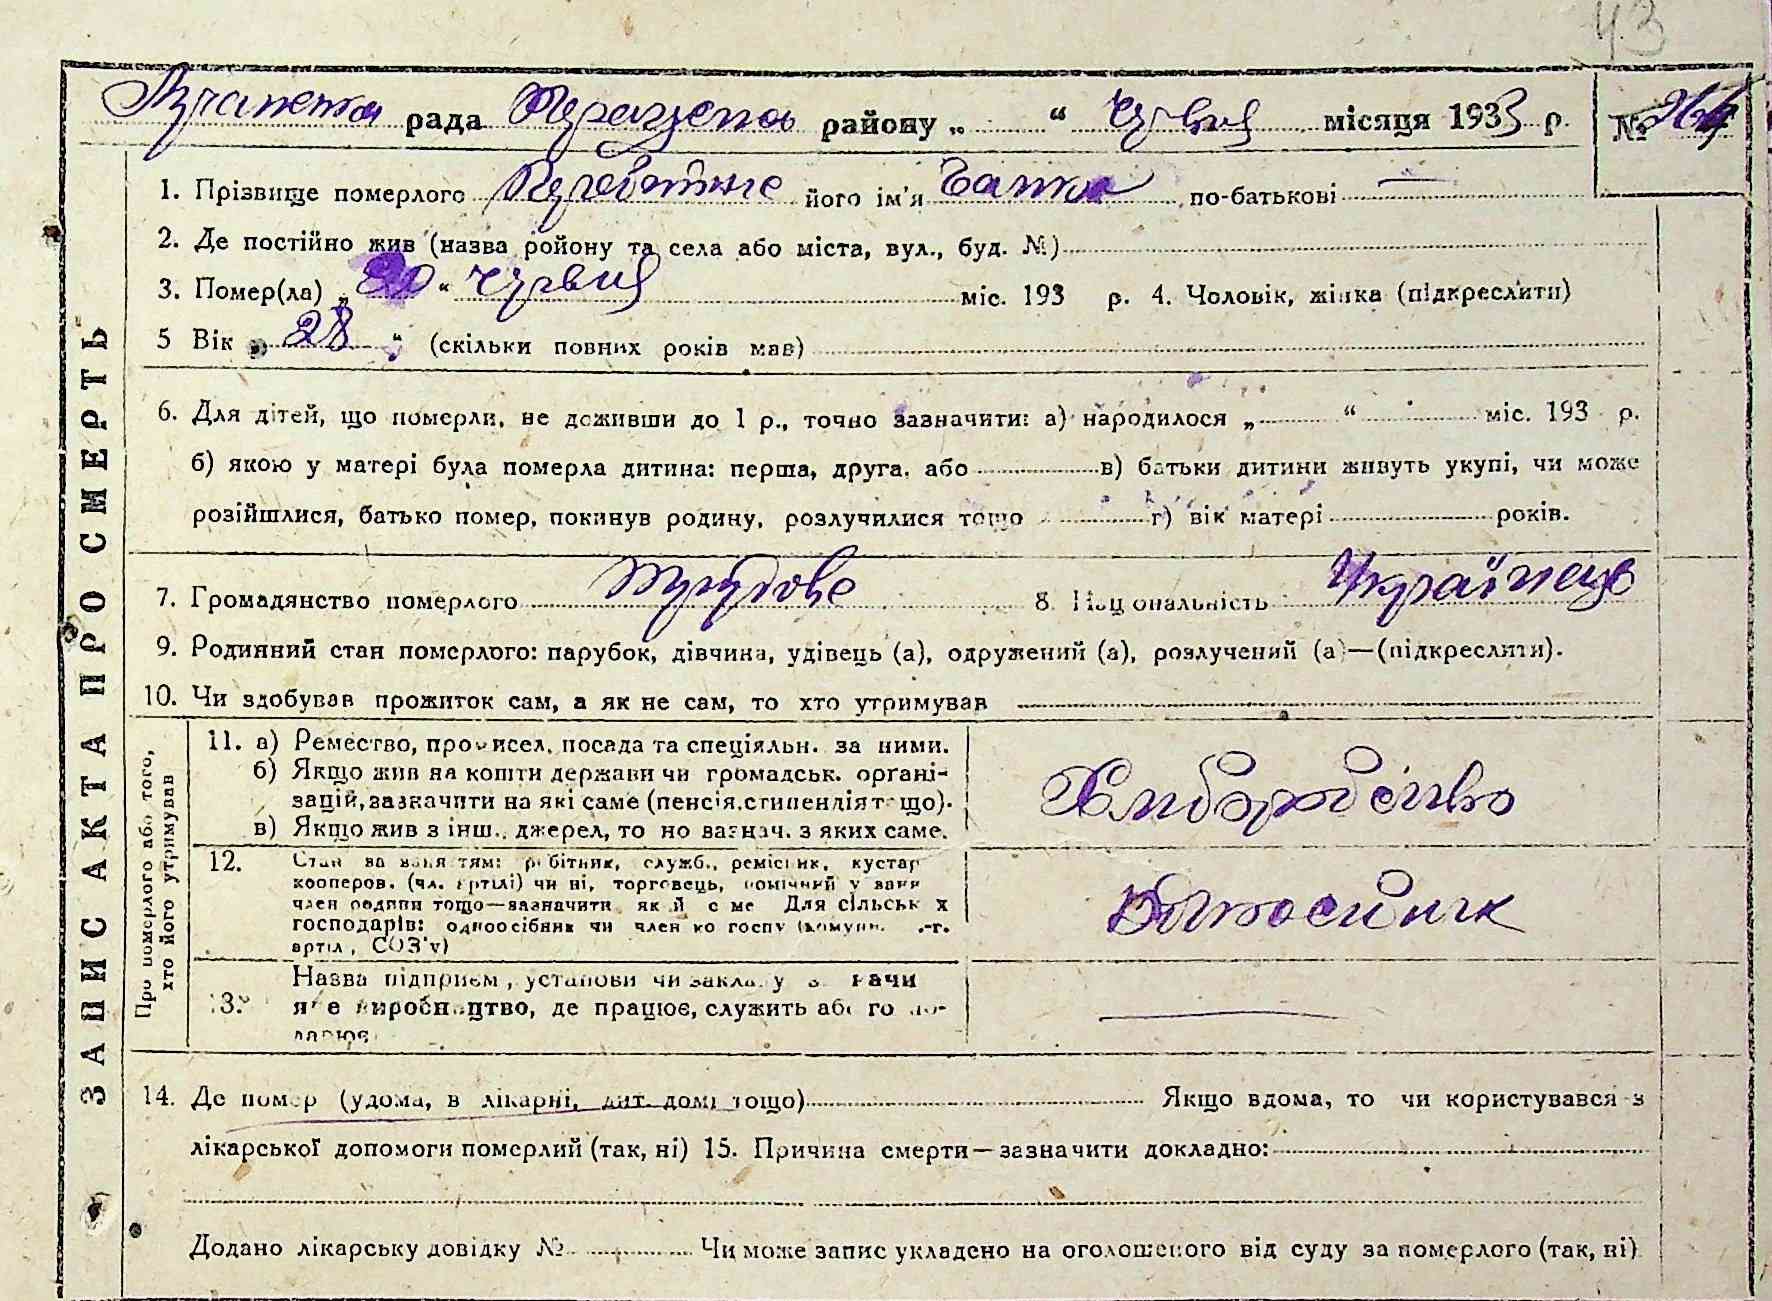 43
рада району „ “ Червня місяця 1933 р. № 264
1. Прізвище померлого його ім'я по-батькові —
2. Де постійно жив (назва ройону та села або міста, вул., буд. №)
3. Помер(ла) „20“ Червня міс. 193 р. 4. Чоловік, жінка (підкреслити)
5 Вік „28“ (скільки повних років мав)
6. Для дітей, що померли, не доживши до 1 р., точно зазначити: а) народилося „ “ міс. 193 р.
б) якою у матері була померла дитина: перша, друга, або в) батьки дитини живуть укупі, чи може
розійшлися, батько помер, покинув родину, розлучилися тощо г) вік матері років.
7. Громадянство померлого 8. Національність Українець
9. Родинний стан померлого: парубок, дівчина, удівець (а), одружений (а), розлучений (а)—(підкреслити).
10. Чи здобував прожиток сам, а як не сам, то хто утримував
ЗАПИС АКТА ПРО СМЕРТЬ
Про померлого або того,
хто його утримував
11. а) Ремество, промисел, посада та спеціяльн. за ними.
б) Якщо жив на кошти держави чи громадськ. орґані-
зацій, зазначити на які саме (пенсія, стипендія тощо).
в) Якщо жив з інш. джерел, то зазнач. з яких саме.
Хліборобство
12. Стан за заняттям: робітник, служб., ремісник, кустар
кооперов. (чл. артілі) чи ні, торговець,
член родини тощо—зазначити Для сільськ
господарів: одноосібник чи член
артіл, СОЗ'у)
13. Назва підприєм, установи чи закладу
виробництво, де працює, служить або
—
14. Де помер (удома, в лікарні, дит. домі тощо) Якщо вдома, то чи користувався з
лікарської допомоги померлий (так, ні) 15. Причина смерти—зазначити докладно:
Додано лікарську довідку № Чи може запис укладено на оголошеного від суду за померлого (так, ні)